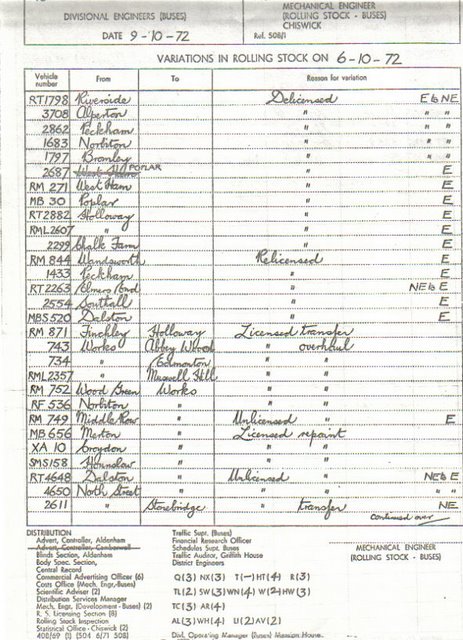 DIVISIONAL ENGINEERS (BUSES)
MECHANICAL ENGINEER
(ROLLING STOCK - BUSES)
CHISWICK
DATE 9-10-72
Ref. 508/1
VARIATIONS IN ROLLING STOCK ON 6-10-72
Vehicle number From To Reason for variation
RT1798 Riverside Delicensed E to NE
3708 Alperton " " "
2862 Peckham " " "
1683 Norbiton " " "
1797 Bromley " " "
2687 POPLAR " E
RM 271 West Ham " E
MB 30 Poplar " E
RT2882 Holloway " E
RML2607 " " E
2299 Chalk Farm " E
RM 844 Wandsworth Relicensed E
1433 Peckham " E
RT2263 Elmers End " NE to E
2554 Southall " E
MBS520 Dalston " E
RM 871 Finchley Holloway Licensed transfer
743 Works Abbey Wood " overhaul
734 " Edmonton " "
RML2357 " Muswell Hill " "
RM 752 Wood Green Works " "
RF 536 Norbiton " " "
RM 749 Middle Row " Unlicensed " E
MB 656 Merton " Licensed repaint
XA 10 Croydon " " "
SMS158 Hounslow " " "
RT4648 Dalston " Unlicensed " NE to E
4650 North Street " " " " "
2611 " Stonebridge " transfer NE
continued over
DISTRIBUTION
Advert, Controller, Aldenham
Advert, Controller, Camberwell
Blinds Section, Aldenham
Body Spec. Section,
Central Record
Commercial Advertising Officer (6)
Costs Office (Mech. Engr.-Buses)
Scientific Adviser (2)
Distribution Services Manager
Mech. Engr. (Development - Buses) (2)
R. S. Licensing Section (8)
Rolling Stock Inspection
Statistical Office - Chiswick (2)
408/69 (1) 504 6/71 508)
Traffic Supt. (Buses)
Financial Research Officer
Schedules Supt. Buses
Traffic Auditor, Griffith House
District Engineers
Q(3) NX(3) T(-) HT(4) R(3)
TL(2) SW(3) WN(4) W(2) HW(3)
TC(3) AR(4)
AL(3) WH(4) LI(2) AV(2)
Divl. Operating Manager (Buses) Mansion House.
MECHANICAL ENGINEER
(ROLLING STOCK - BUSES)